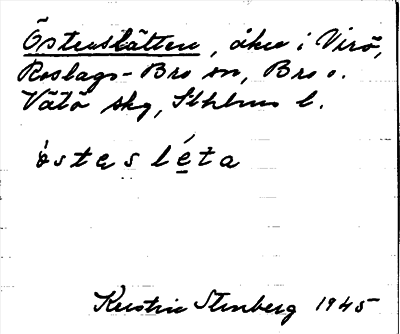 Österslätten, åker i Virö,
Roslags-Bro sn, Bro o.
Vätö skg, Sthlms l.
östesléta
Kerstin Stenberg 1945